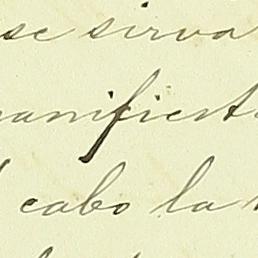 se sirva
manifiest
cabo la